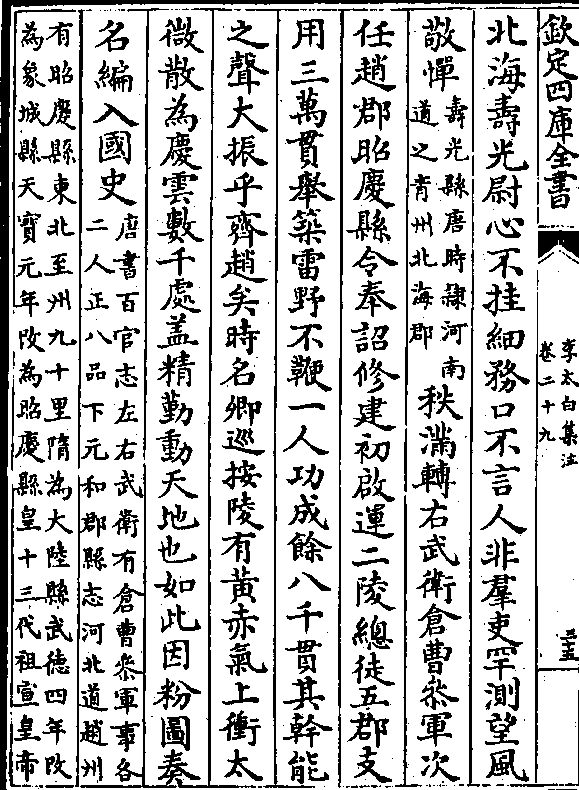 欽定四庫全書
李太白集注
卷二十九
三五
北海壽光尉心不挂細務口不言人非羣吏罕測望風
敬憚壽光縣唐時隸河南道之青州北海郡秩滿轉右武衛倉曹叅軍次
任趙郡昭慶縣令奉詔修建初啟運二陵總徒五郡支
用三萬貫舉築雷野不鞭一人功成餘八千貫其幹能
之聲大振乎齊趙矣時名卿巡按陵有黄赤氣上衝太
微散為慶雲數千處盖精勤動天地也如此因粉圖奏
名編入國史唐書百官志左右武衛有倉曹叅軍事各二人正八品下元和郡縣志河北道趙州
有昭慶縣東北至州九十里隋為大陸縣武德四年改
為象城縣天寶元年改為昭慶縣皇十三代祖宣皇帝